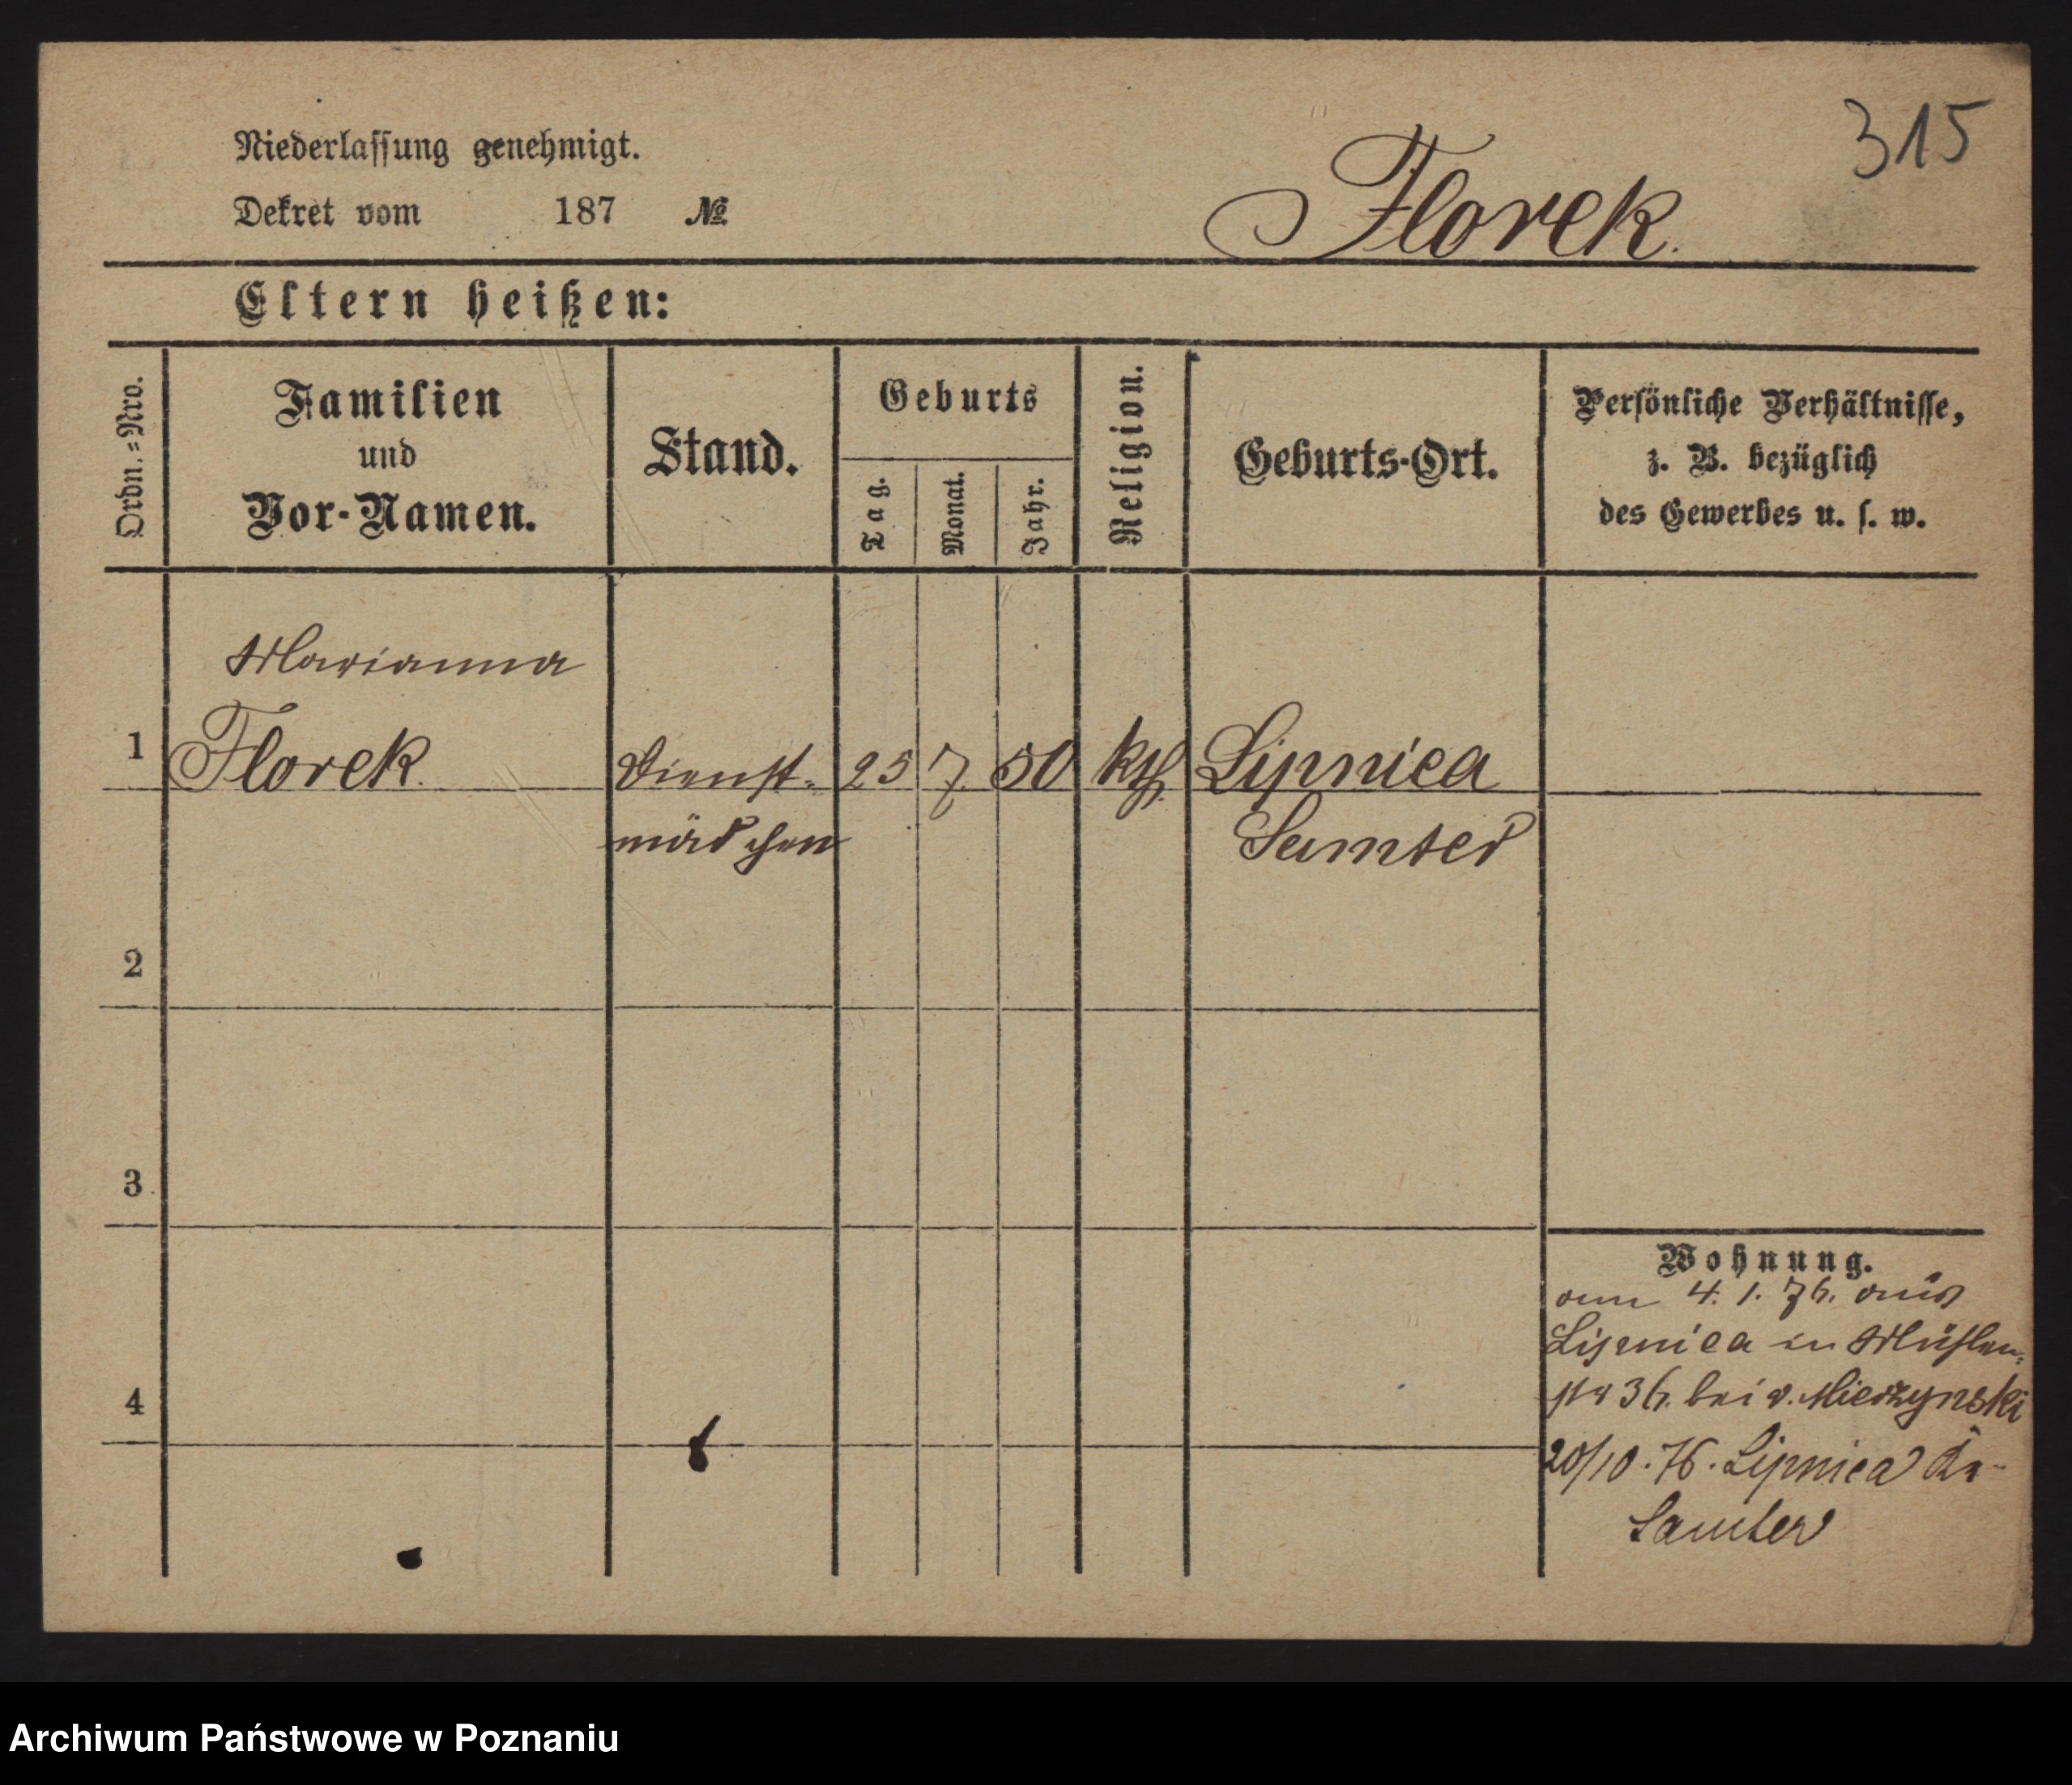 315
Niederlassung genehmigt.
Dekret vom 187 №
Florek.
Eltern heißen:
Ordn.=Nro.
Familien
und
Vor-Namen.
Stand.
Geburts
Tag.
Monat.
Jahr.
Religion.
Geburts-Ort.
Persönliche Verhältnisse,
z. B. bezüglich
des Gewerbes u. s. w.
Marianna
1 Florek. Dienst- 25 7. 50 kth. Lipnica
mädchen Samter
2
3
4
Wohnung.
am 4. 1. 76. aus
Lipnica in Mühlen-
str 36. bei v. Mierzynski
20/10. 76. Lipnica Kr-
Samter
Archiwum Państwowe w Poznaniu